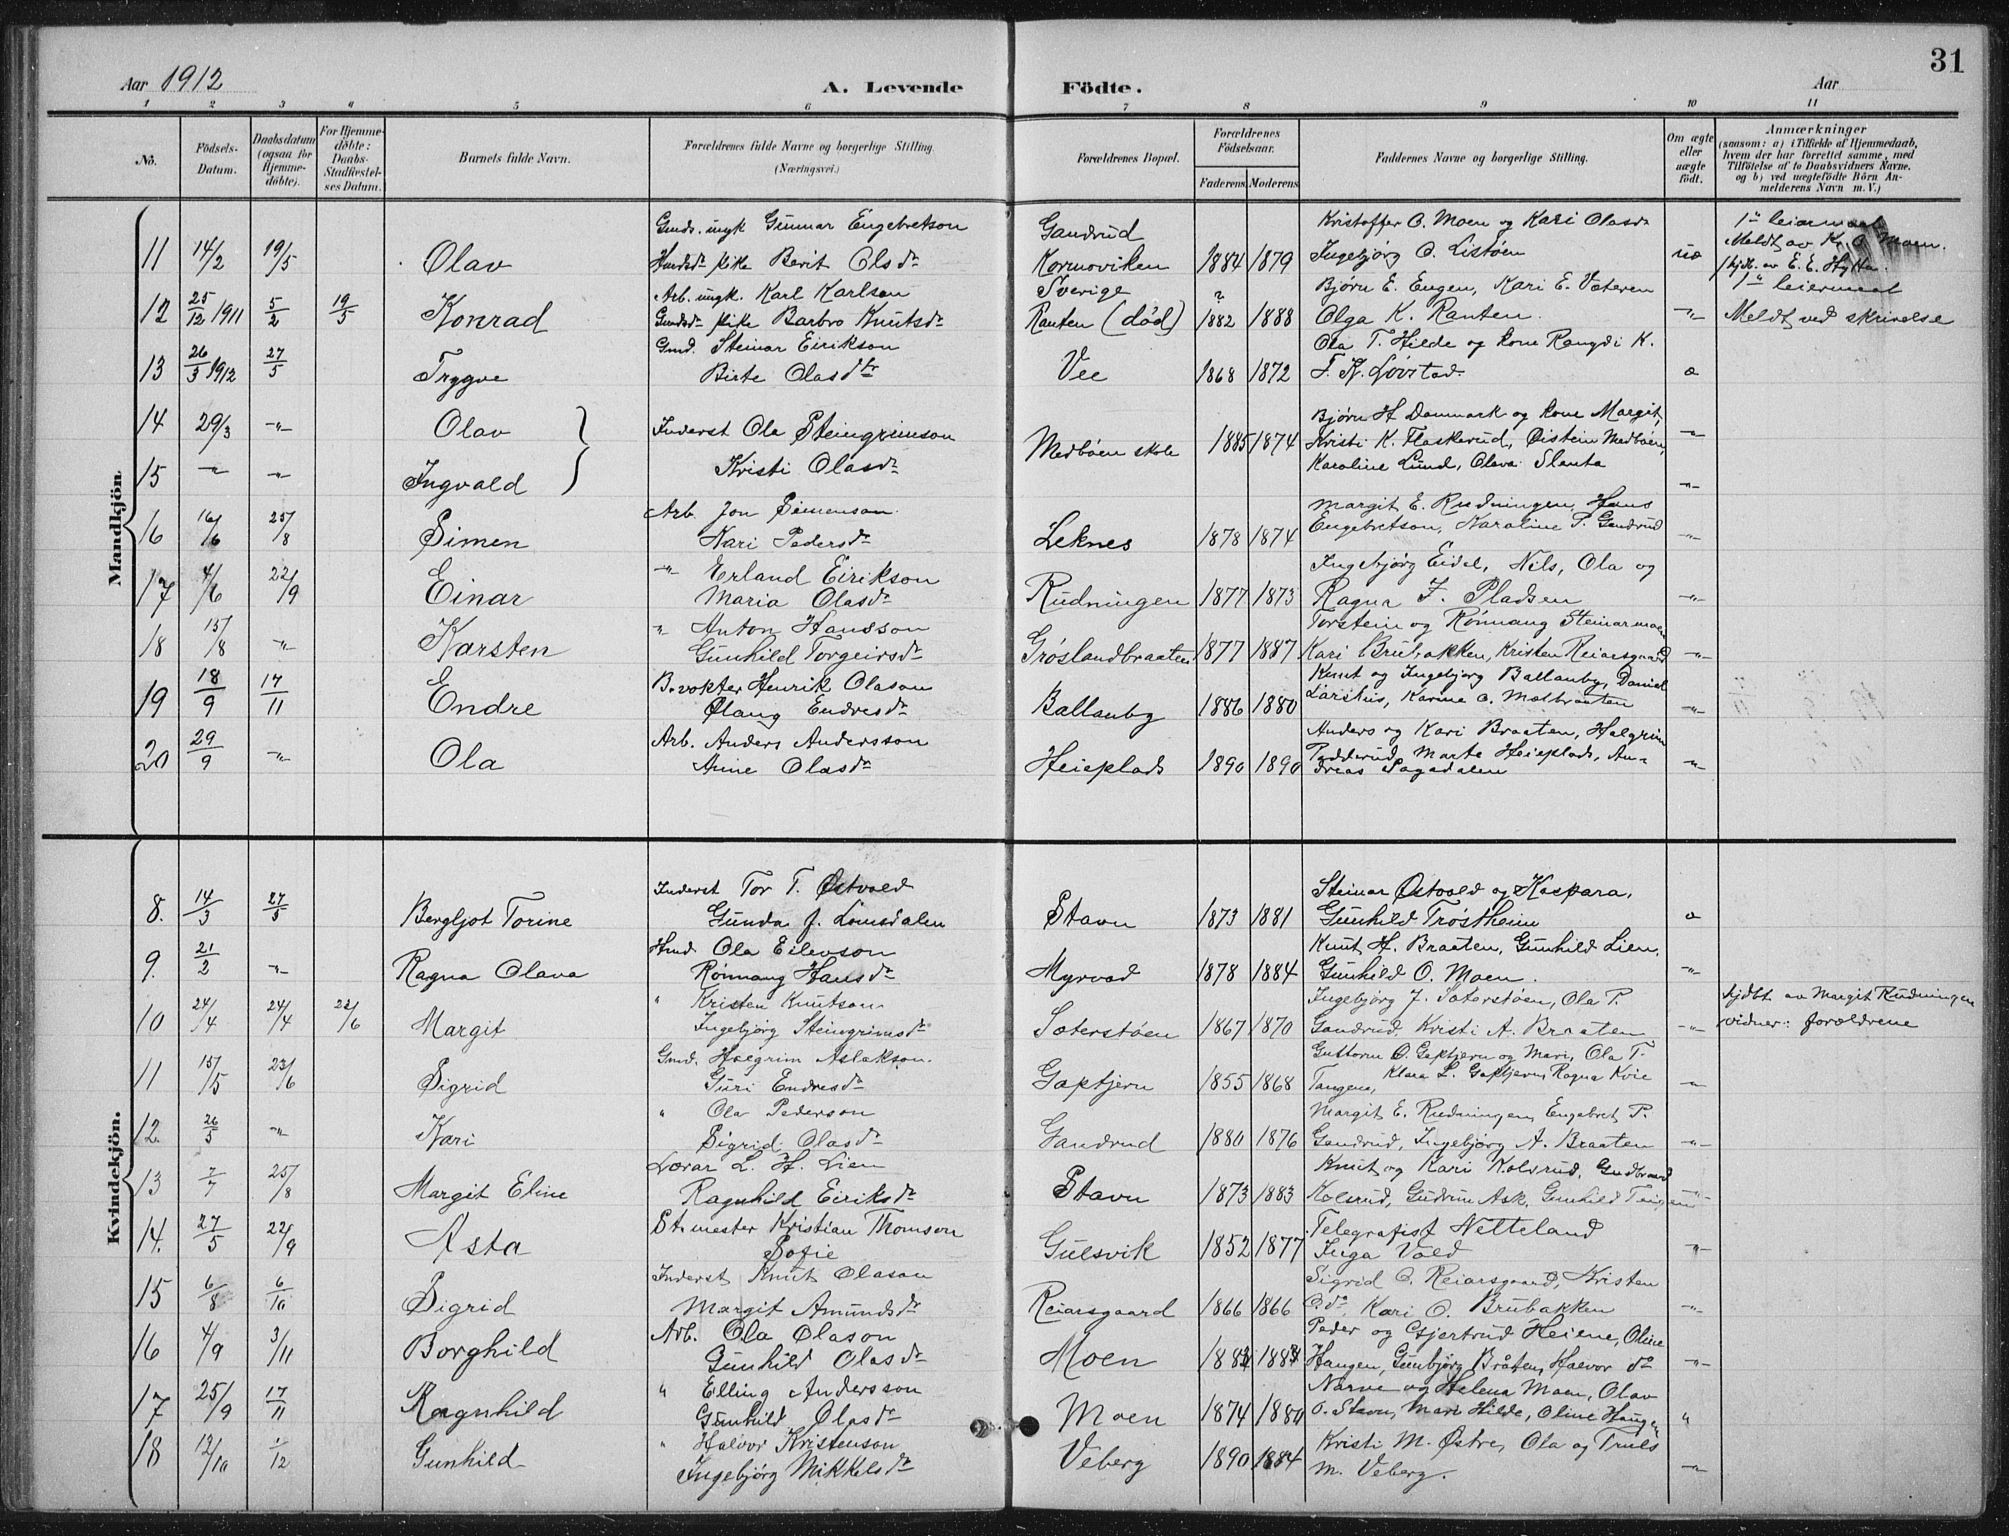 31
Aar 1912 A. Levende Födte. Aar
1 2 3 4 5 6 7 8 9 10 11
No. Födsels-Datum. Daabsdatum (ogsaa for Hjemme-döbte). For Hjemme-döbte: Daabs-Stadfæstelses Datum. Barnets fulde Navn. Forældrenes fulde Navne og borgerlige Stilling. (Næringsvei.) Forældrenes Bopæl. Forældrenes Födselsaar. Faderens Moderens Faddernes Navne og borgerlige Stilling. Om ægte eller uægte födt. Anmærkninger (saasom: a) i Tilfælde af Hjemmedaab, hvem der har forrettet samme, med Tilföielse af to Daabsvidners Navne. og b) ved uægtefödte Börn Anmelderens Navn m. V.)
Mandkjön.
Gmds. ungk Gunnar Engebretson Gandrud Kristoffer O. Moen og Kari Olasdr
11 14/2 19/5 Olav Husmdsdr pike Berit Olsdr Kornoviken 1884 1879 Ingebjørg O. Listøen uæ Meldt av K. O. Moen.
hjdb. av E. E. Hytta.
Arb. ungk. Karl Karlson Sverige ? Bjørn E. Engen, Kari E. Væteren 1ste leiermaal
12 25/12 1911 5/2 19/5 Konrad Gmdsdr pike Barbro Knutsdr Ranten (død) 1882 1888 Olga K. Ranten. -"- Meldt ved skrivelse
Gmd. Steinar Eirikson Ola T. Hilde og kone Rangdi K.
13 26/3 1912 27/5 Tryggve Birte Olasdtr Vee 1868 1872 T. K. Løvstad. æ
Bjørn H Danmark og kone Margit,
14 29/3 -"- Olav Inderst Ola Steingrimson Medbøen skole 1885 1874 Kristi K. Flaskerud, Øistein Medbøen, -"-
15 -"- -"- Ingvald Kristi Olasdr Karoline Lund, Olava Slenta -"-
Arb. Jon Simenson Margit E. Rudningen, Hans
16 16/6 25/8 Simen Kari Pedersdr Leknes 1878 1874 Engebretson, Karoline P. Gandrud -"-
-"- Erland Eirikson Ingebjørg Eidel, Nils, Ola og
17 4/6 22/9 Einar Maria Olasdr Rudningen 1877 1873 Ragna J. Pladsen -"-
" Anton Hansson Torstein og Rønnaug Steinarmoen
18 15/8 -"- Karsten Gunhild Torgeirsdr Grøslandbraaten 1877 1887 Kari Brubakken, Kristen Reiarsgaard -"-
B.vokter Henrik Olason Knut og Ingebjørg Ballanby, Daniel
19 18/9 17/11 Endre Ølaug Endresdr Ballanby 1886 1880 Larshus, Karine O. Mælbraaten -"-
Arb. Anders Andersson Anders og Kari Braaten, Halgrim
20 29/9 -"- Ola Anne Olasdr Heieplads 1890 1890 Padderud, Marte Heieplads, An- -"-
dreas Sagadalen
Kvindekjön.
Inderst Tor T. Østvold Steinar Østvold og Kaspara,
8. 14/3 27/5 Bergljot Torine Gunda J. Lomsdalen Stavn 1873 1881 Gunhild Trøstheim æ
Hmd. Ola Eilevson Knut H. Braaten, Gunhild Lien,
9. 21/2 -"- Ragna Olava Rønnaug Hansdr Myrvod 1878 1884 Gunhild O. Moen. -"-
" Kristen Knutson Ingebjørg J. Sæterstøen, Ola P. hjdbt av Margit Rudningen
10 24/4 24/4 23/6 Margit Ingebjørg Steingrimsdr Sæterstøen 1867 1870 Gandrud, Kristi A. Braaten -"- vidner: forældrene
Gmd. Halgrim Aslakson. Guttorm O. Gaptjern og Mari, Ola T.
11 15/5 23/6 Sigrid Guri Endresdr Gaptjern 1855 1868 Tangene, Klara L. Gaptjern, Ragna Kvie -"-
" Ola Pederson Margit E. Rudningen, Engebret P.
12. 26/5 -"- Kari Sigrid Olasdr Gandrud 1880 1876 Gandrud, Ingebjørg A. Braaten -"-
Lærar L. H. Lien Knut og Kari Kolsrud, Gudbrand
13 7/7 25/8 Margit Eline Ragnhild Eiriksdr Stavn 1873 1883 Kolsrud, Gudrun Ask, Gunhild -"-
St.mester Kristian Thomson Telegrafist Netteland
14. 27/5 22/9 Asta Sofie Gulsvik 1852 1877 Inga Vold -"-
Inderst Knut Olason Sigrid O. Reiarsgaard, Kristen
15 6/8 6/10 Sigrid Margit Amundsdr Reiarsgaard 1866 1866 O. do Kari O. Brubakken -"-
Arb. Ola Olason Peder og Gjertrud Heiene, Oline
16 4/9 3/11 Borghild Gunhild Olasdr Moen Haugen, Gunbjørg Bråten, Halvor do -"-
" Elling Andersson Narve og Helena Moen, Olav
17 25/9 17/11 Ragnhild Gunhild Olasdr Moen 1874 1880 O. Stavn, Mari Hilde, Oline Haugen "
" Halvor Kristenson Kristi M. Østre, Ola og Truls
18 12/10 1/12 Gunhild Ingebjørg Mikkelsdr Veberg 1890 1884 M. Veberg. -"-